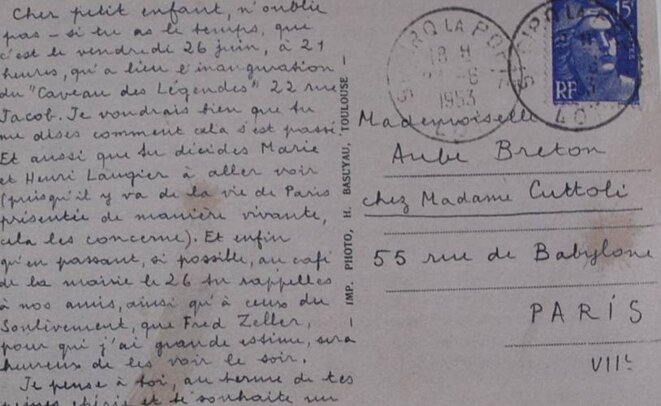 Cher petit enfant, n'oublie
pas - si tu as le temps, que
c'est le vendredi 26 juin, à 21
heures, qu'a lieu l'inauguration
du "Caveau des Légendes" 22 rue
Jacob. Je voudrais bien que tu
me dises comment cela s'est passé.
Et aussi que tu décides Marie
et Henri Laugier à aller voir
(puisqu'il y va de la vie de Paris
présentée de manière vivante,
cela les concerne). Et enfin
qu'en passant, si possible, au café
de la mairie le 26 tu rappelles
à nos amis, ainsi qu'à ceux du
Soulèvement, que Fred Zeller,
pour qui j'ai grande estime, sera
heureux de les voir le soir.
Je pense à toi, au terme de tes
et te souhaite un
IMP. PHOTO, H. BASUYAU, TOULOUSE
CIRQ LA POPIE
18 H
6
1953
LOT
15F
RF
Mademoiselle
Aube Breton
chez Madame Cuttoli
55 rue de Babylone
PARÍS
VIIe